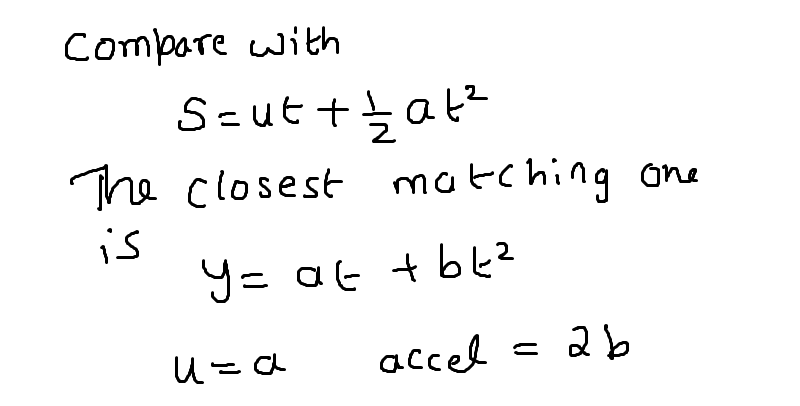 Compare with
S=ut+½at²
The closest matching one
is
y= at +bt²
u=a accel = 2b